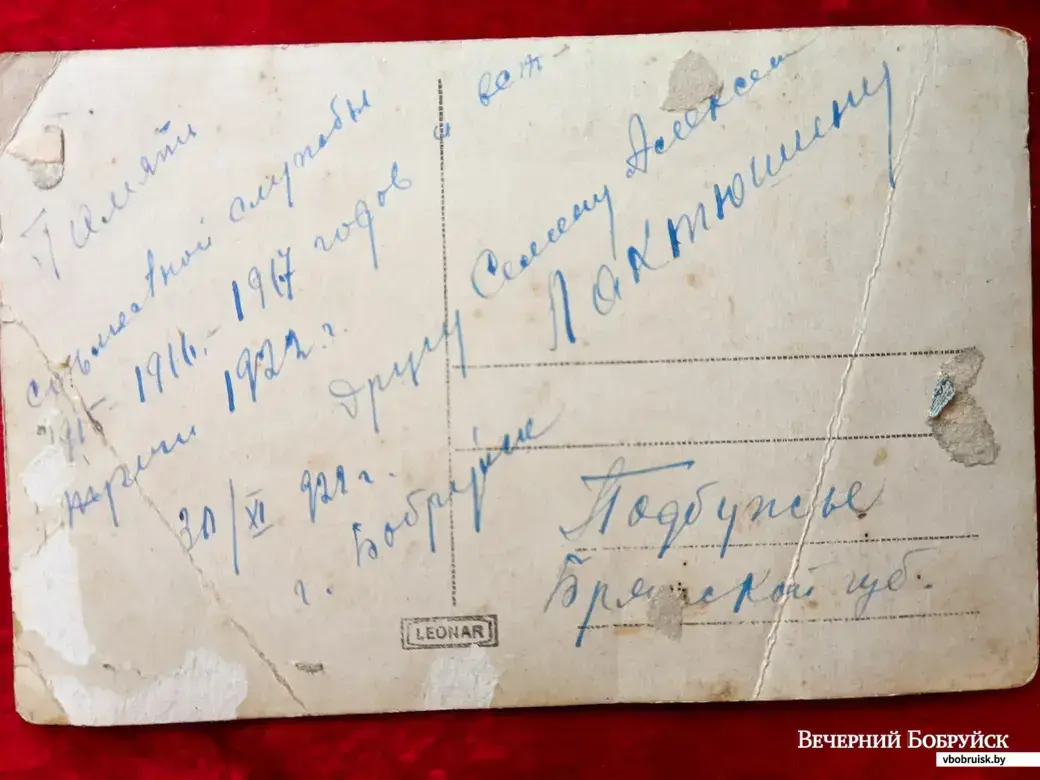 Памяти
совместной службы
1916 - 1917 годов и
1922 г. другу Семену Алексеев
Лактюшину
30/XI 922 г.
г. Бобруйск
Подбужье
Брянской губ.
LEONAR
ВЕЧЕРНИЙ БОБРУЙСК
vbobruisk.by